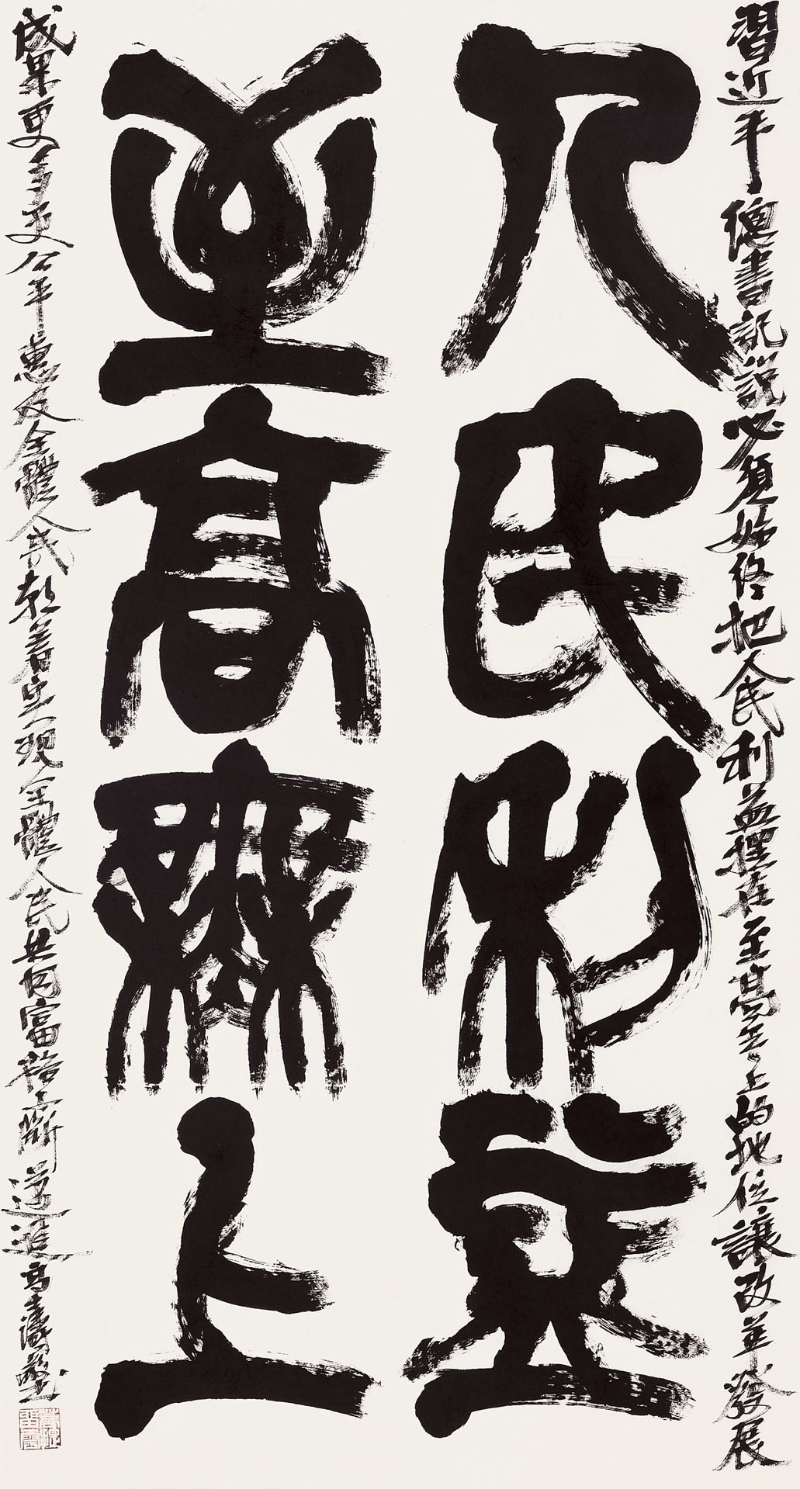 習近平總書記說必須始終把人民利益擺在至高無上的地位讓改革發展
人民利益
至高無上
成果更多更公平惠及全體人民朝着实現全體人民共同富裕不斷邁進